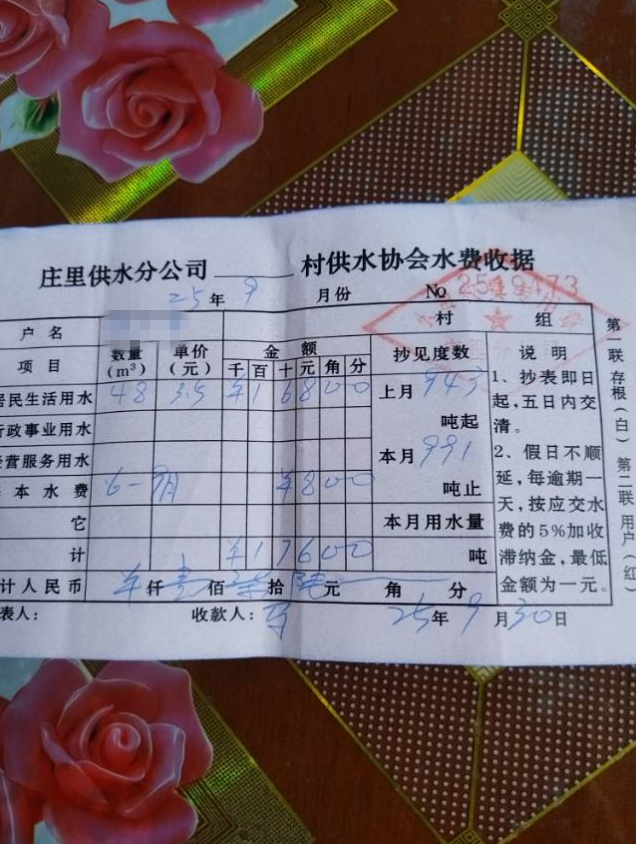 庄里供水分公司 村供水协会水费收据
25年9月份 No 2519173
户名 村 组
项目 数量(m³) 单价(元) 金额 千 百 十 元 角 分 抄见度数 说明
居民生活用水 48 3.5 ¥16800 上月943吨起
行政事业用水
经营服务用水 本月991吨止
本水费 6-9月 ¥800 本月用水量
它
计 ¥17600 吨
1、抄表即日起,五日内交清。
2、假日不顺延,每逾期一天,按应交水费的5%加收滞纳金,最低金额为一元。
计人民币 仟壹佰 拾 元 角 分
表人: 收款人: 25年9月30日
第一联存根(白) 第二联用户(红)